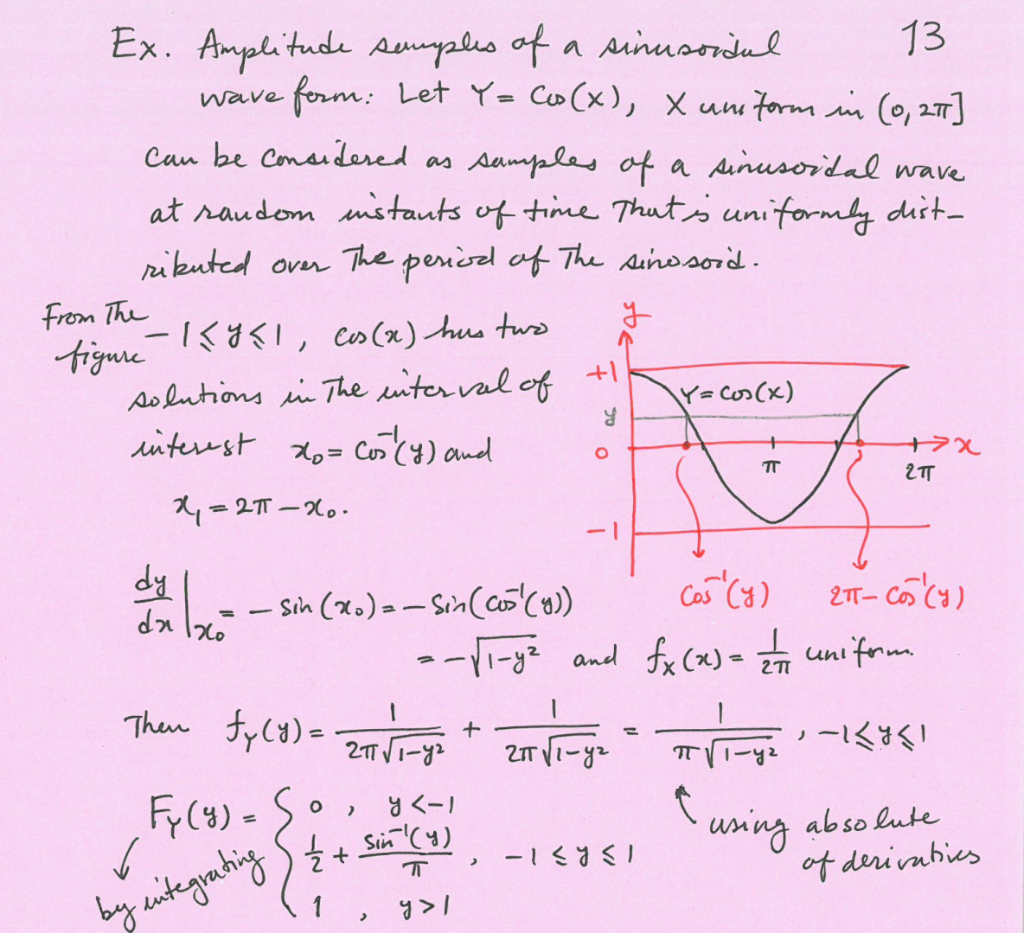 Ex. Amplitude samples of a sinusoidal 13
wave form: Let Y = Cos(x), X uniform in (0, 2π]
can be considered as samples of a sinusoidal wave
at random instants of time that is uniformly dist-
ributed over the period of the sinosoid.
From the
figure
-1 ≤ y ≤ 1, cos(x) has two
solutions in the interval of
interest x₀ = Cos⁻¹(y) and
x₁ = 2π - x₀.
y
+1
Y = Cos(x)
0
π
2π
x
-1
Cos⁻¹(y) 2π - Cos⁻¹(y)
dy/dx |x₀ = - Sin(x₀) = - Sin(Cos⁻¹(y))
= -√(1-y²) and fₓ(x) = 1/2π uniform.
Then f_Y(y) = 1/(2π√(1-y²)) + 1/(2π√(1-y²)) = 1/(π√(1-y²)), -1 ≤ y ≤ 1
using absolute
of derivatives
F_Y(y) = { 0, y < -1
1/2 + Sin⁻¹(y)/π, -1 ≤ y ≤ 1
1, y > 1
by integrating